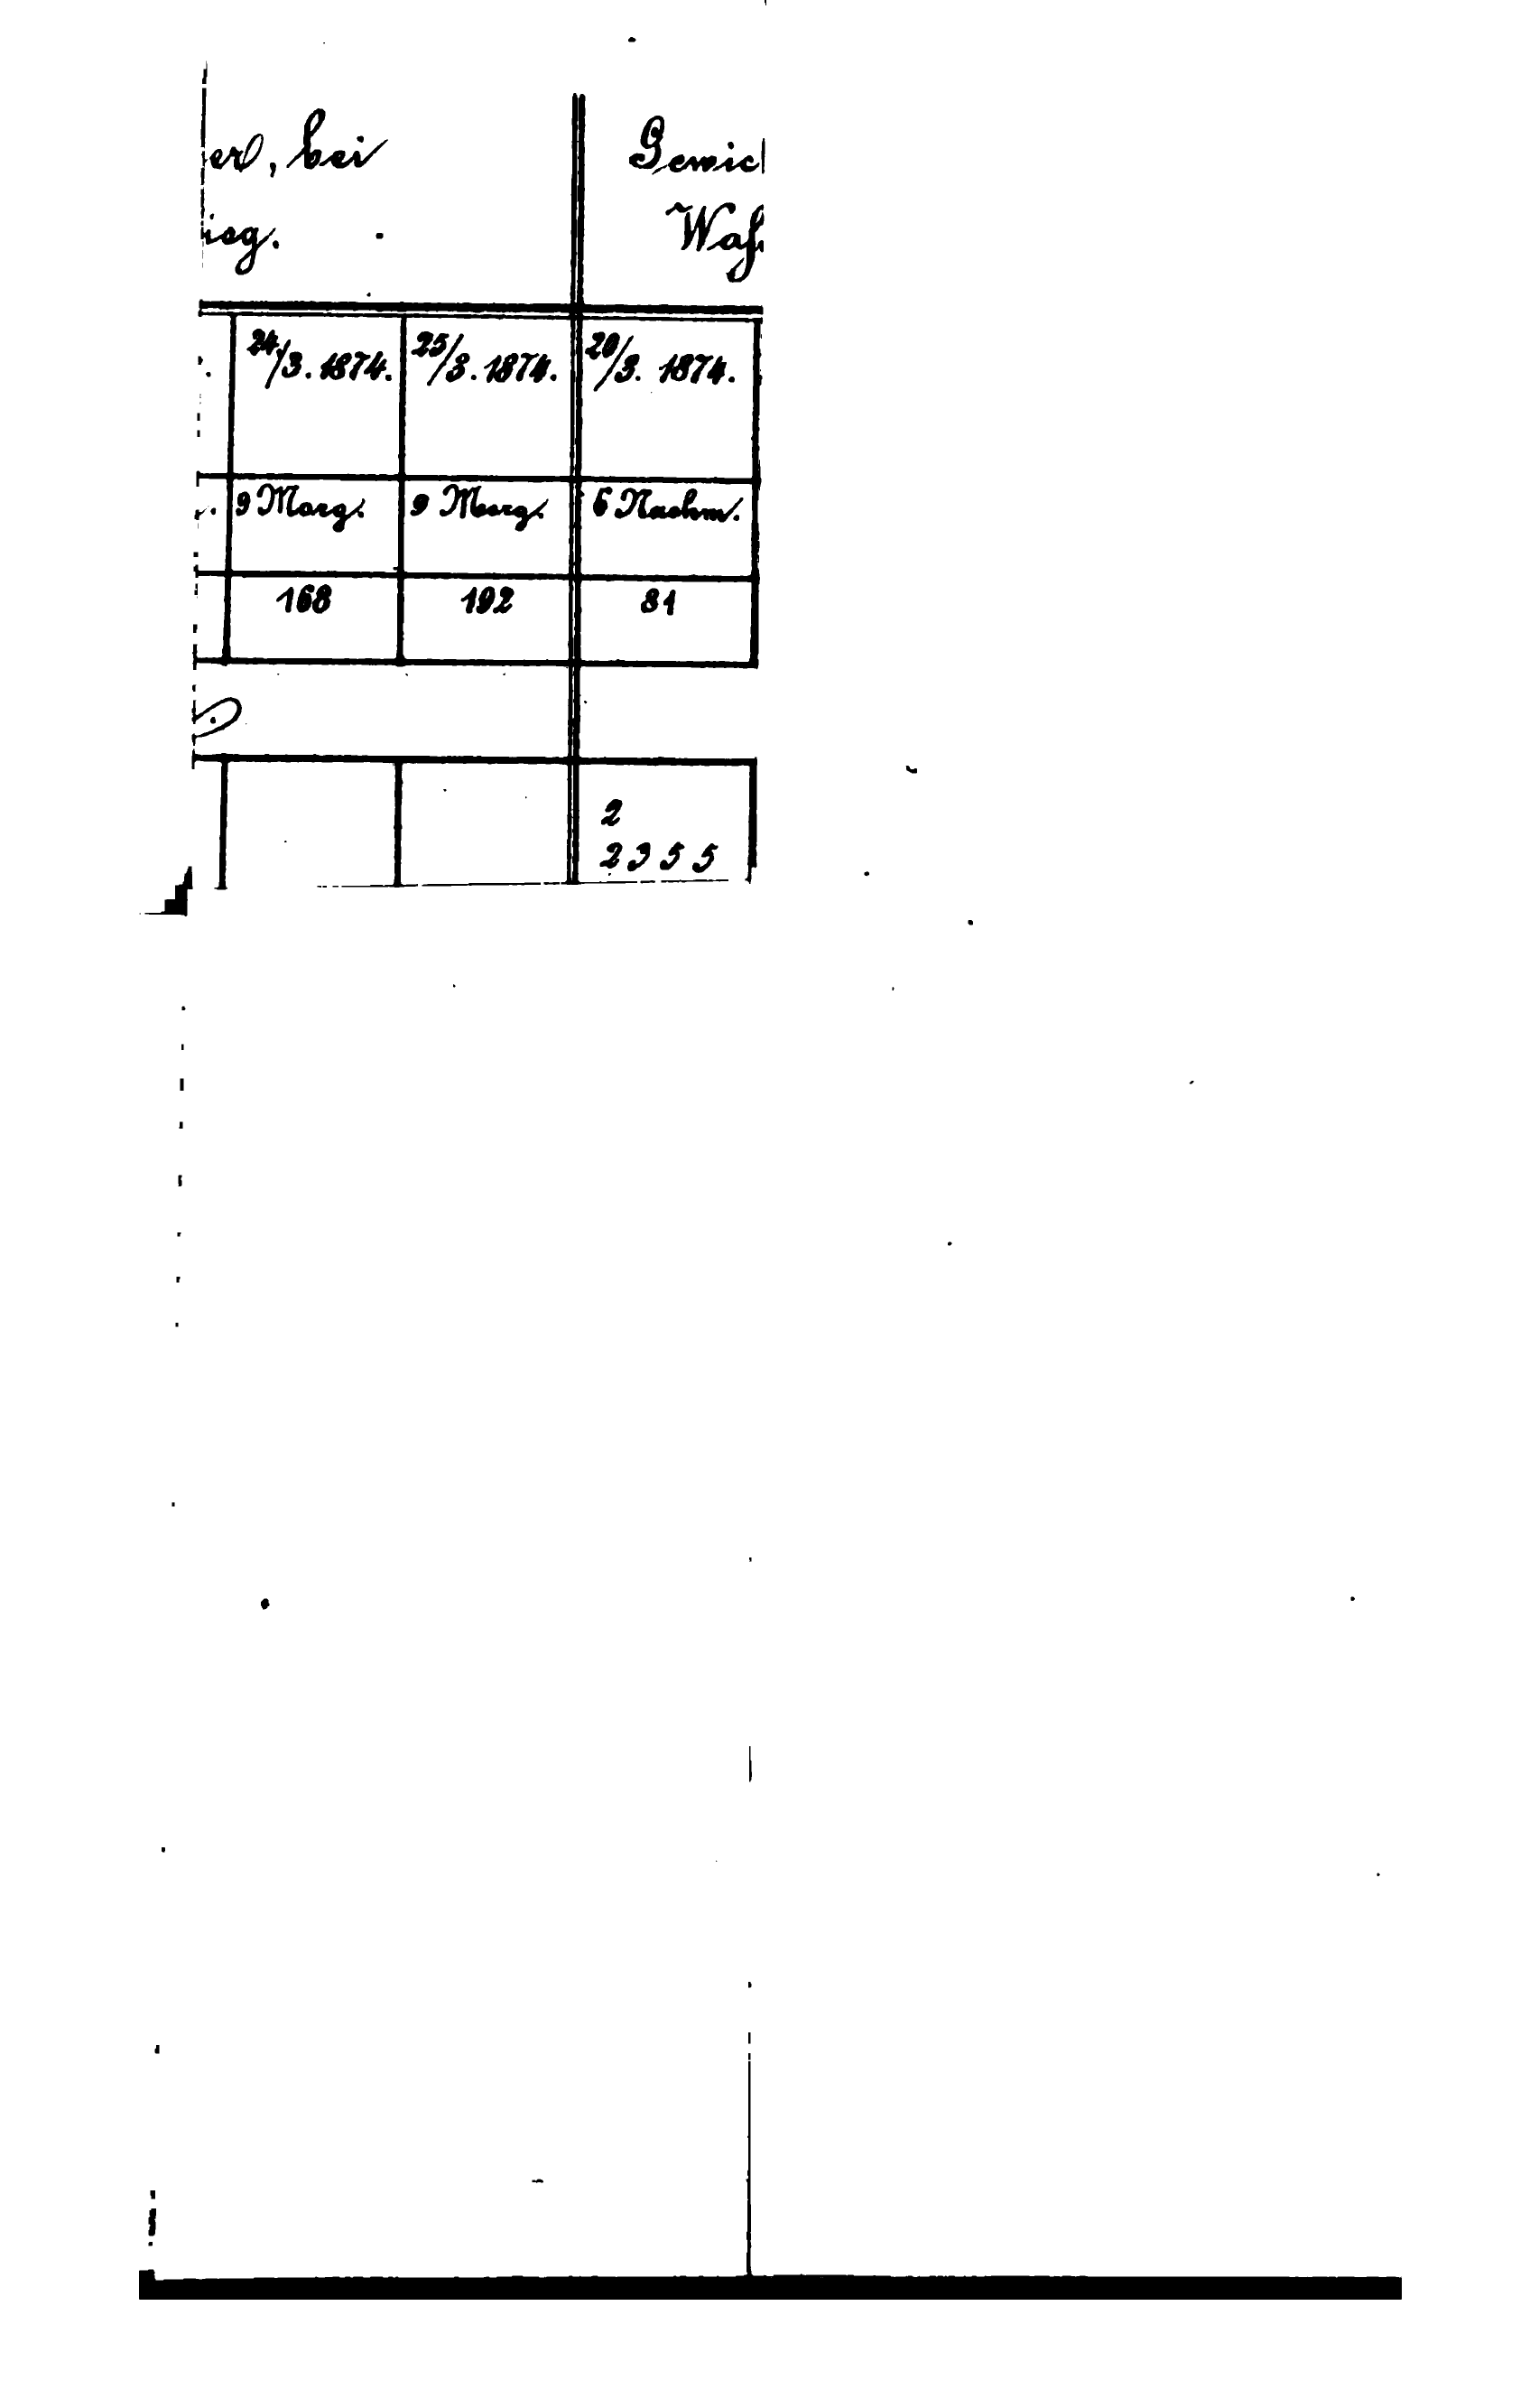 er, bei Gewic
iog. Waſ
24/3. 1874. 25/3. 1874. 20/3. 1874.
9 Morg. 9 Morg. 6 Nachm.
168 192 81
2
2355